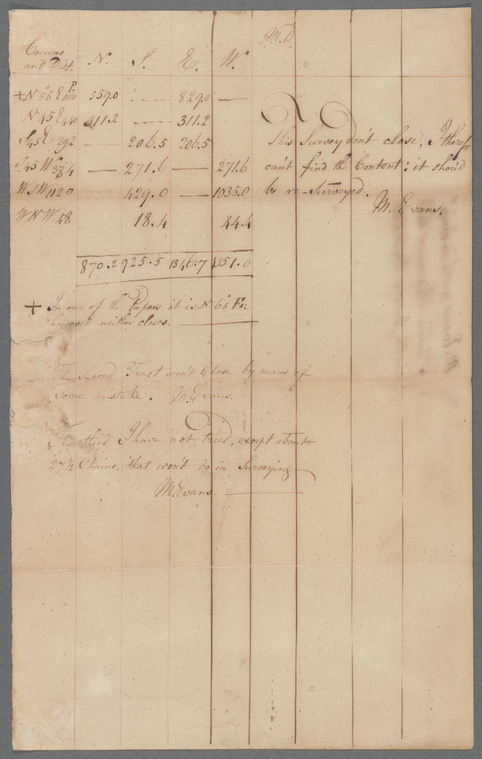 M.D.
Courses and Dist. N. S. E. W.
+ N 56 E P. 559.0 — 829.0 —
N 45 E 440 311.2 — 311.2
S 45 E 292 — 206.5 206.5
S 45 W 384 — 271.6 — 271.6
WSW 1120 — 429.0 — 1035.0
WNW 48 18.4 44.4
870.2 925.5 1346.7 1351.0
This Survey don't close, I therefore
can't find the Content; it should
be re-Surveyed.
M. Evans.
+ In one of the Papers it is N 65 E.
however neither closes.
The second Tract won't Close by means of
some mistake. M. Evans.
The third I have not tried, except about
27½ Chains, that won't do in Surveying
M. Evans.